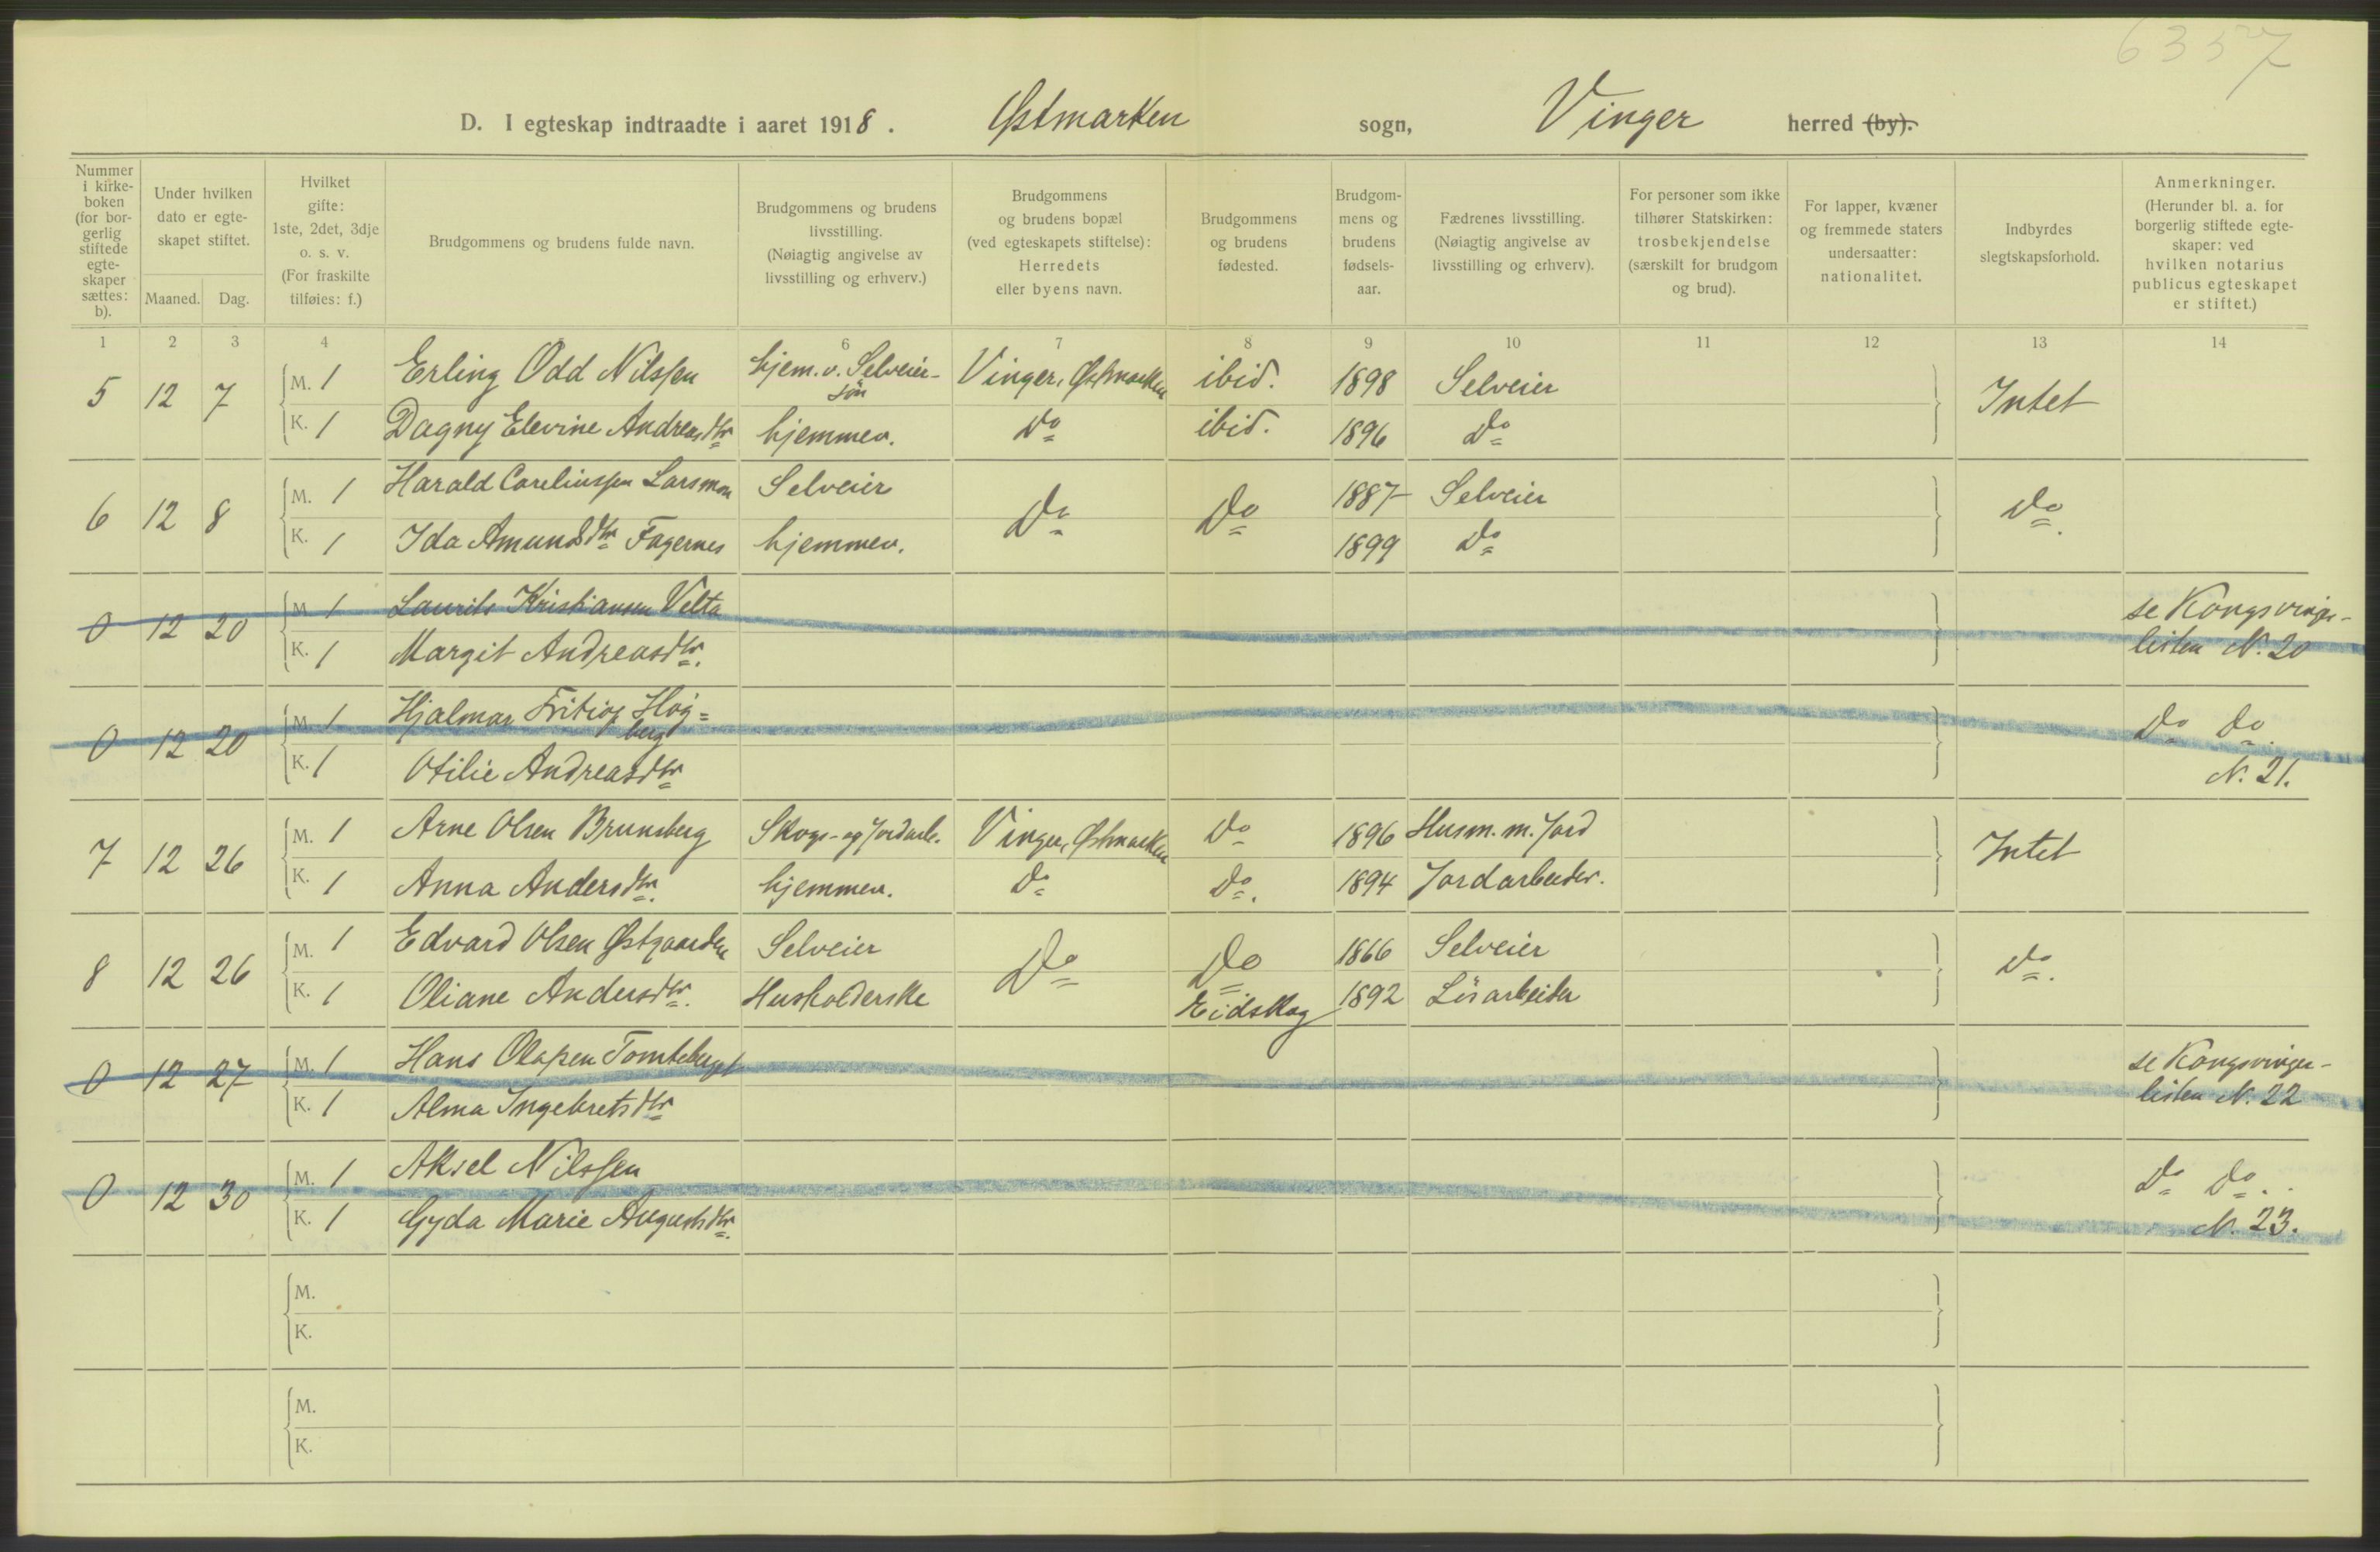 6357
D. I egteskap indtraadte i aaret 1918. Østmarken sogn, Vinger herred (by).
Nummer i kirke-boken (for bor-gerlig stiftede egte-skaper sættes: b).
Under hvilken dato er egte-skapet stiftet.
Maaned. Dag.
Hvilket gifte: 1ste, 2det, 3dje o. s. v. (For fraskilte tilføies: f.)
Brudgommens og brudens fulde navn.
Brudgommens og brudens livsstilling. (Nøiagtig angivelse av livsstilling og erhverv.)
Brudgommens og brudens bopæl (ved egteskapets stiftelse): Herredets eller byens navn.
Brudgommens og brudens fødested.
Brudgom-mens og brudens fødsels-aar.
Fædrenes livsstilling. (Nøiagtig angivelse av livsstilling og erhverv).
For personer som ikke tilhører Statskirken: trosbekjendelse (særskilt for brudgom og brud).
For lapper, kvæner og fremmede staters undersaatter: nationalitet.
Indbyrdes slegtskapsforhold.
Anmerkninger. (Herunder bl. a. for borgerlig stiftede egte-skaper: ved hvilken notarius publicus egteskapet er stiftet.)
1 2 3 4 6 7 8 9 10 11 12 13 14
5 12 7 M. 1 Erling Odd Nilssen hjem.v. Selveier-søn Vinger, Østmarken ibid. 1898 Selveier Intet
K. 1 Dagny Elevine Andreasdtr hjemmev. Do ibid. 1896 Do
6 12 8 M. 1 Harald Careliussen Larsmon Selveier Do Do 1887 Selveier Do.
K. 1 Ida Amundsdtr Fagernes hjemmev. 1899 Do
0 12 20 M. 1 Laurits Kristiansen Velta se Kongsvinger-
K. 1 Margit Andreasdtr. listen N. 20
0 12 20 M. 1 Hjalmar Fritiof Høg=berg Do Do.
K. 1 Otilie Andreasdtr N. 21.
7 12 26 M. 1 Arne Olsen Brunsberg Skogs- og Jordarb. Vinger, Østmarken Do 1896 Husm. m. Jord Intet
K. 1 Anna Andersdtr. hjemmev. Do Do. 1894 Jordarbeider.
8 12 26 M. 1 Edvard Olsen Østgaarden Selveier Do Do 1866 Selveier Do.
K. 1 Oliane Andersdtr. Husholderske Eidskog 1892 Løsarbeider
0 12 27 M. 1 Hans Olafsen Tomteberget se Kongsvinger-
K. 1 Alma Ingebretsdtr listen N. 22
0 12 30 M. 1 Aksel Nilssen Do Do.
K. 1 Gyda Marie Augustsdtr. N. 23.
M.
K.
M.
K.